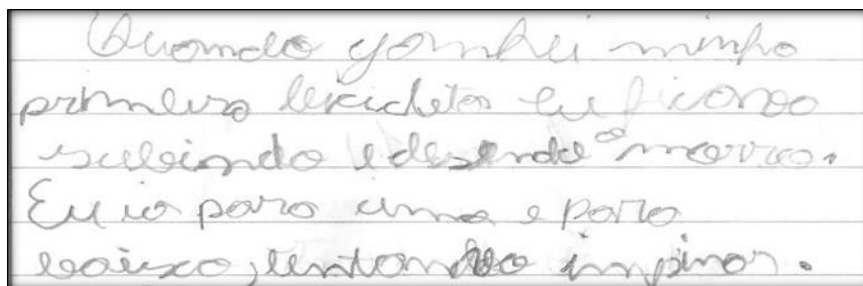 Quando ganhei minha
primeira bicicleta eu ficava
subindo e desendo o morro.
Eu ia para cima e para
baixo, tentando impinar.